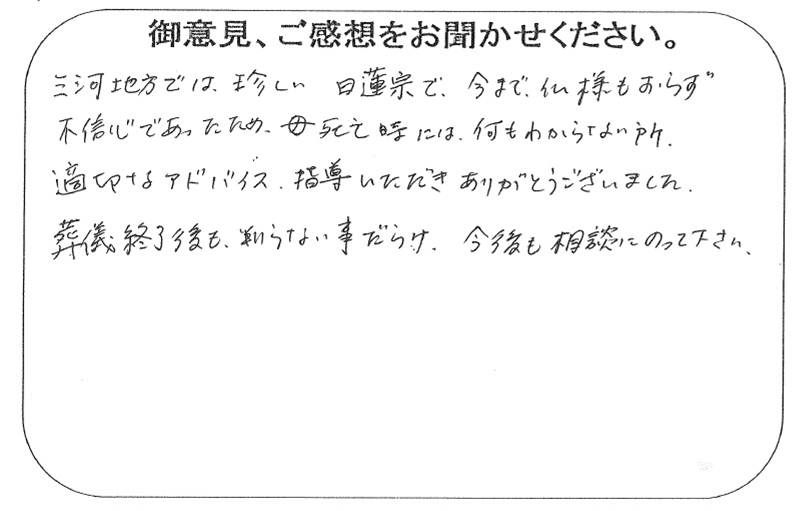 御意見、ご感想をお聞かせください。
三河地方では、珍しい 日蓮宗で、今まで、仏様もおらず
不信心であったため、母死亡時には、何もわからない所、
適切なアドバイス、指導いただきありがとうございました。
葬儀終了後も、判らない事だらけ、今後も相談にのって下さい、